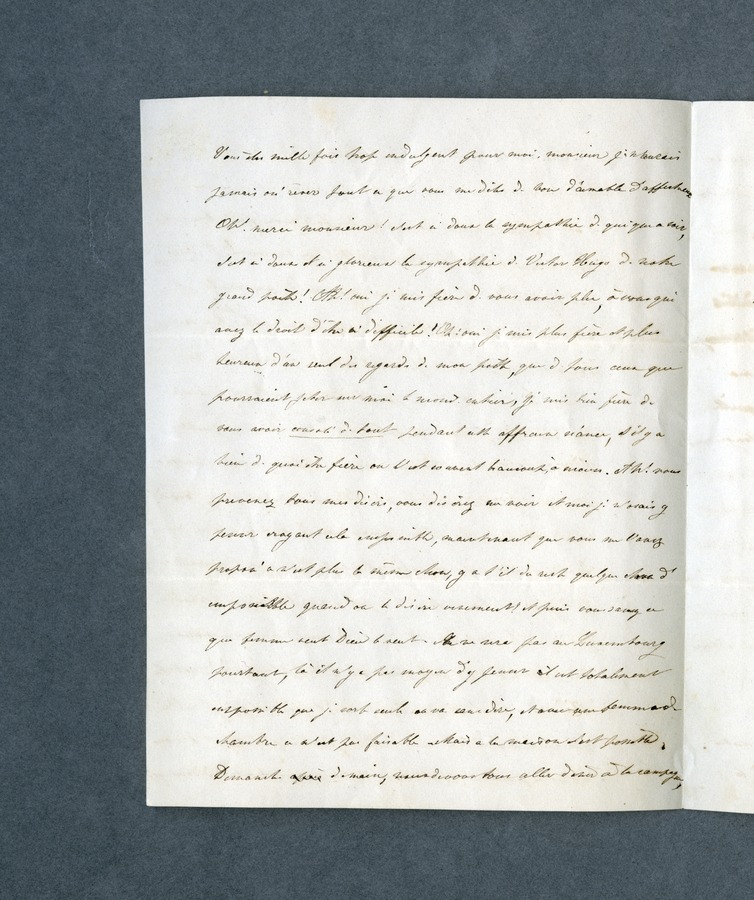 Vous êtes mille fois trop indulgent pour moi, monsieur je n'aurais
jamais osé rêver tout ce que vous me dites de bon d'aimable d'affectueux
Oh! merci monsieur! c'est si doux la sympathie de qui que ce soit,
c'est si doux et si glorieux la sympathie de Victor Hugo de notre
grand poëte! Ah! oui je suis fière de vous avoir plu, à vous qui
avez le droit d'être si difficile! Oh! oui je suis plus fière et plus
heureuse d'un seul des regards de mon poëte, que de tous ceux que
pourraient jeter sur moi le monde entier, je suis bien fière de
vous avoir consolé de tout pendant cette affreuse séance, et il y a
bien de quoi être fière on l'est souvent à moins. Ah! vous
prévenez tous mes désirs, vous désirez me voir et moi je n'osais y
penser croyant cela impossible, maintenant que vous me l'avez
proposé ce n'est plus la même chose, y a t'il du reste quelque chose d'
impossible quand on le désire vivement! et puis vous savez ce
que femme veut Dieu le veut. Ce ne sera pas au Luxembourg
pourtant, là il n'y a pas moyen d'y penser il est totalement
impossible que je sorte seule cela va sans dire, et avec une femme de
chambre ce n'est pas faisable. Mais à la maison c'est possible.
Dimanche après demain, nous devons tous aller dîner à la campagne,